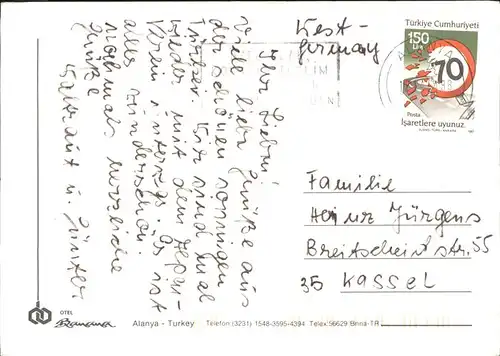 Ihr Lieben!
Viele liebe Grüße aus
der schönen sonnigen
Türkei. Wir sind mal
wieder mit dem
Verein unterwegs. Es ist
alles wunderschön.
Nochmals herzliche
Grüße
u. Günter
West-
Germany
Türkiye Cumhuriyeti
150
LİRA
70
Posta
İşaretlere uyunuz.
Familie
Heinz Jürgens
Breitscheidstr. 55
35 Kassel
OTEL
Banana
Alanya - Turkey Telefon (3231) 1548-3595-4394 Telex 56629 Bnna-TR